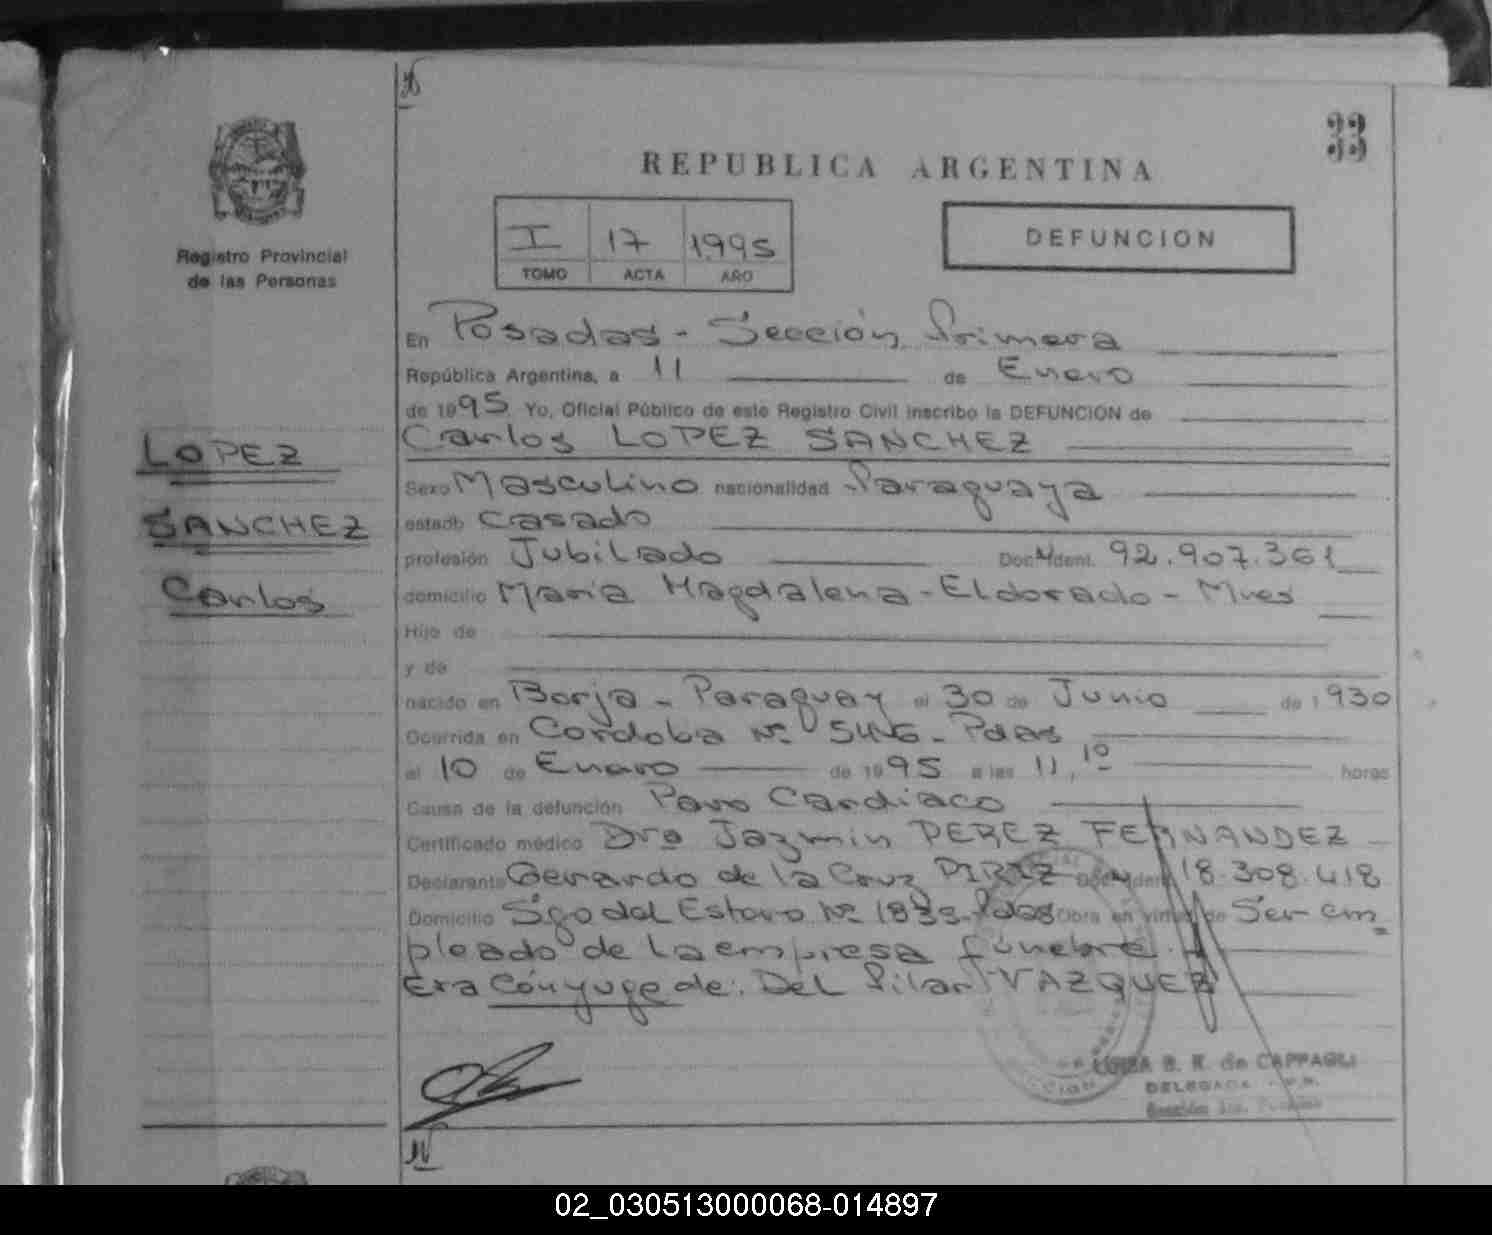 33
REPUBLICA ARGENTINA
Registro Provincial
de las Personas
I 17 1995
TOMO ACTA AÑO
DEFUNCION
En Posadas - Sección Primera
República Argentina, a 11 de Enero
de 1995 Yo, Oficial Público de este Registro Civil inscribo la DEFUNCION de
Carlos LOPEZ SANCHEZ
LOPEZ
SANCHEZ
Carlos
Sexo Masculino nacionalidad Paraguaya
estado Casado
profesión Jubilado Doc. Ident. 92.907.361
domicilio Maria Magdalena - Eldorado - Mnes
Hijo de
y de
nacido en Borja - Paraguay el 30 de Junio de 1930
Ocurrida en Cordoba Nº - Pdas
el 10 de Enero de 1995 a las 11,10 horas
Causa de la defunción Paro Cardiaco
Certificado médico Dra Jazmin PEREZ FERNANDEZ
Declarante Gerardo de la Cruz PIRIZ Doc. Ident. 18.308.418
Domicilio Sgo del Estero Nº Pdas Obra en virtud de Ser em
pleado de la empresa fúnebre.
Era Cónyuge de: Del Pilar VAZQUEZ
B. R. de CAPPAGLI
DELEGADA
02_030513000068-014897